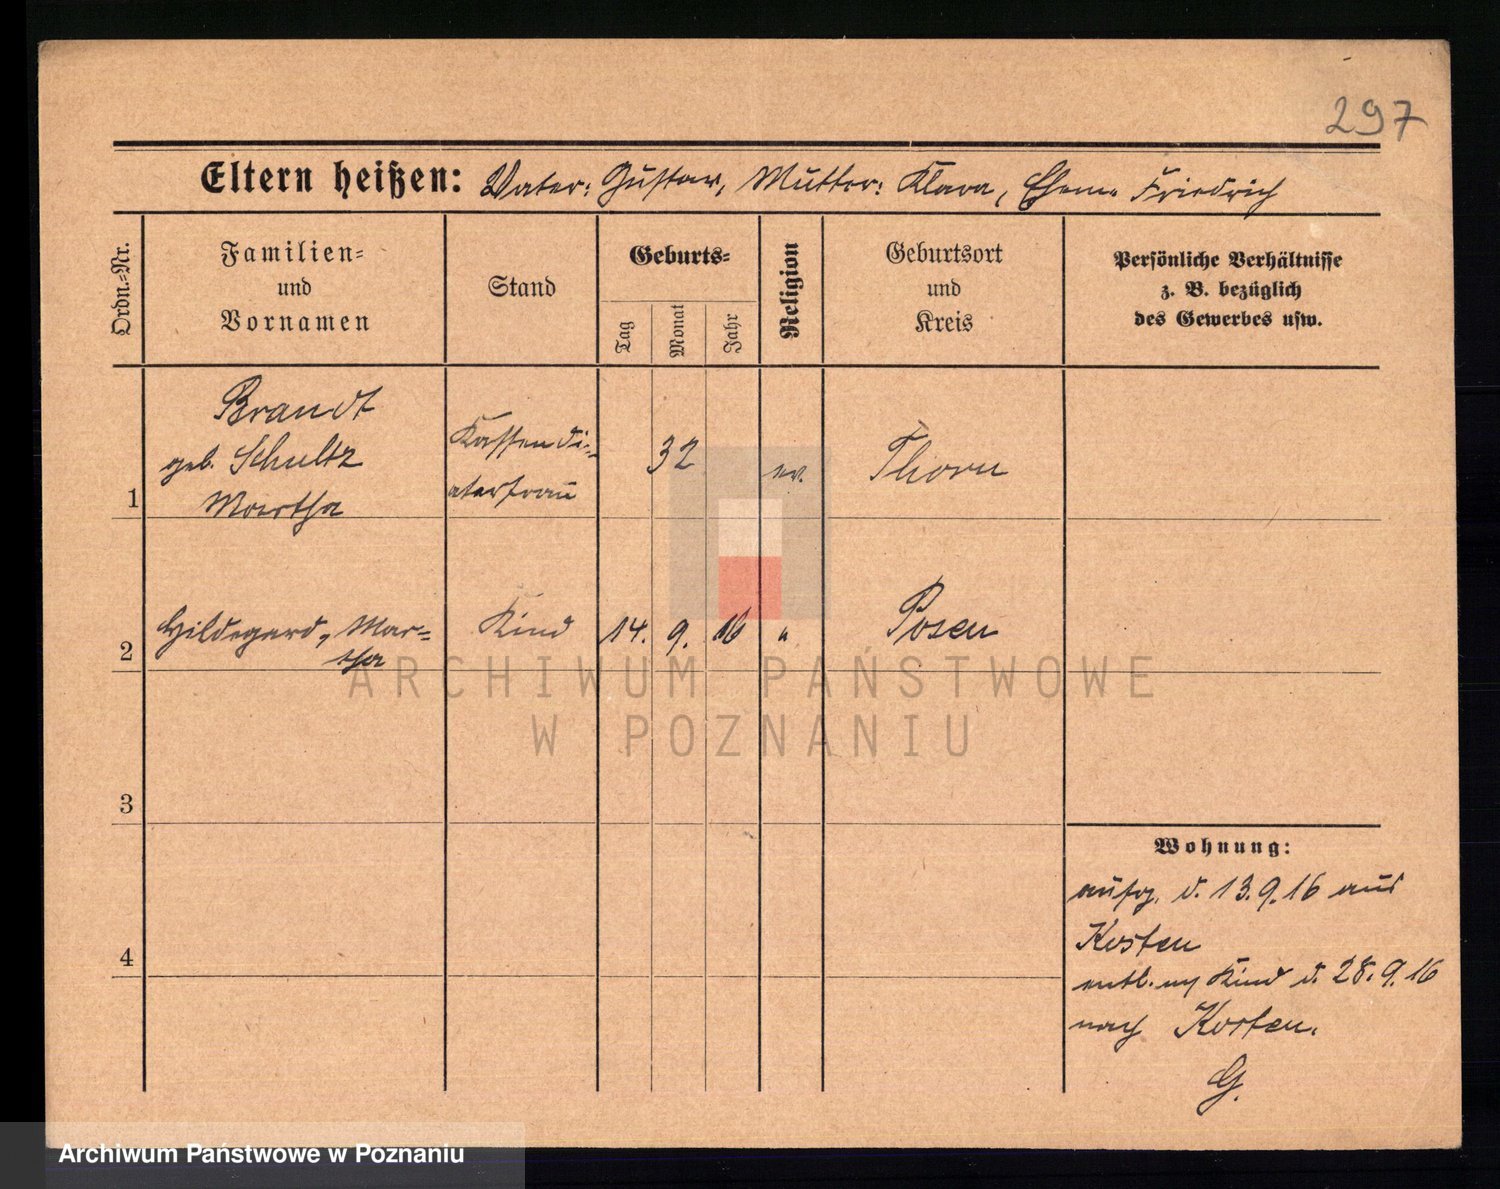 297
Eltern heißen: Vater: Gustav, Mutter: Klara, Ehem. Friedrich
Ordn.-Nr.
Familien-
und
Vornamen
Stand
Geburts-
Tag
Monat
Jahr
Religion
Geburtsort
und
Kreis
Persönliche Verhältnisse
z. B. bezüglich
des Gewerbes usw.
1
Brandt
geb. Schultz
Martha
Kassendi-
atarfrau
32
ev.
Thorn
2
Hildegard, Mar-
tha
Kind
14. 9. 16
"
Posen
3
4
Wohnung:
aufg. d. 13.9.16 aus
Kosten
entl. m Kind d. 28.9.16
nach Kosten.
G.
ARCHIWUM PAŃSTWOWE
W POZNANIU
Archiwum Państwowe w Poznaniu